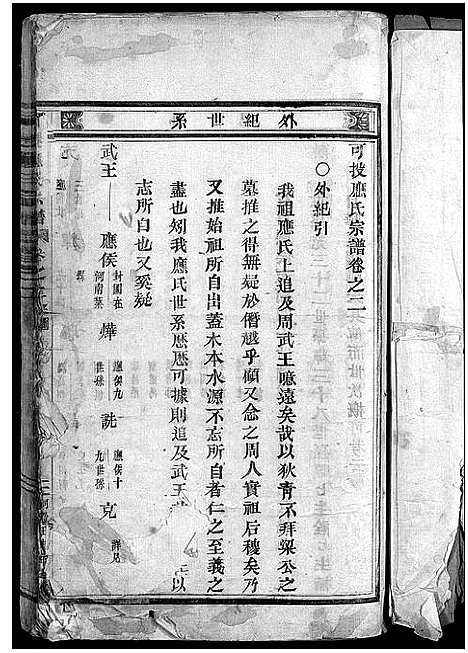 外紀世系
可投應氏宗譜卷之二
〇外紀引
我祖應氏上追及周武王噫遠矣哉以狄青不拜梁公之
墓推之得無疑於僭越乎顧又念之周人實祖后稷矣乃
又推始祖所自出蓋木本水源不忘所自者仁之至義之
盡也矧我應氏世系歷歷可據則追及武王
以
志所自也又奚疑
武王 應侯 封國在河南葉 燁 應侯九世孫 詵 應侯十九世孫 克 詳見